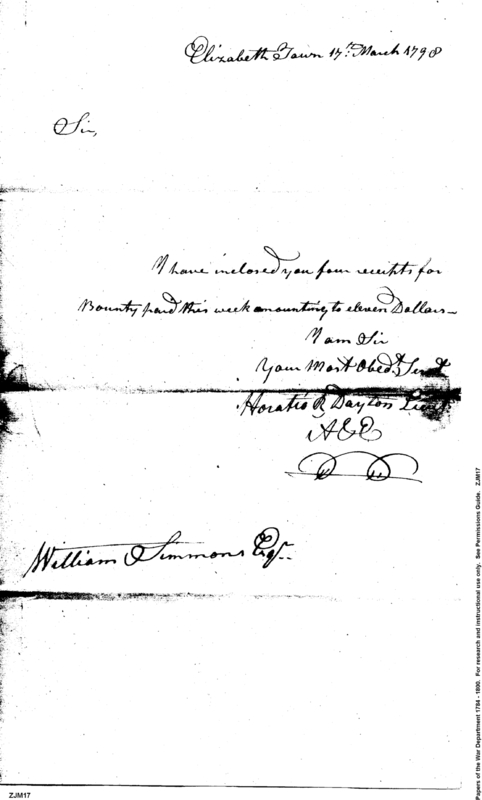 Elizabeth Town 17th. March 1798
Sir,
I have inclosed you four receipts for
Bounty paid this week amounting to eleven Dollars—
I am Sir
Your Most Obedt. Servt
Horatio R Dayton Lieut.
A&E
William Simmons Esqr.
ZJM17
Papers of the War Department 1784 - 1800. For research and instructional use only. See Permissions Guide. ZJM17